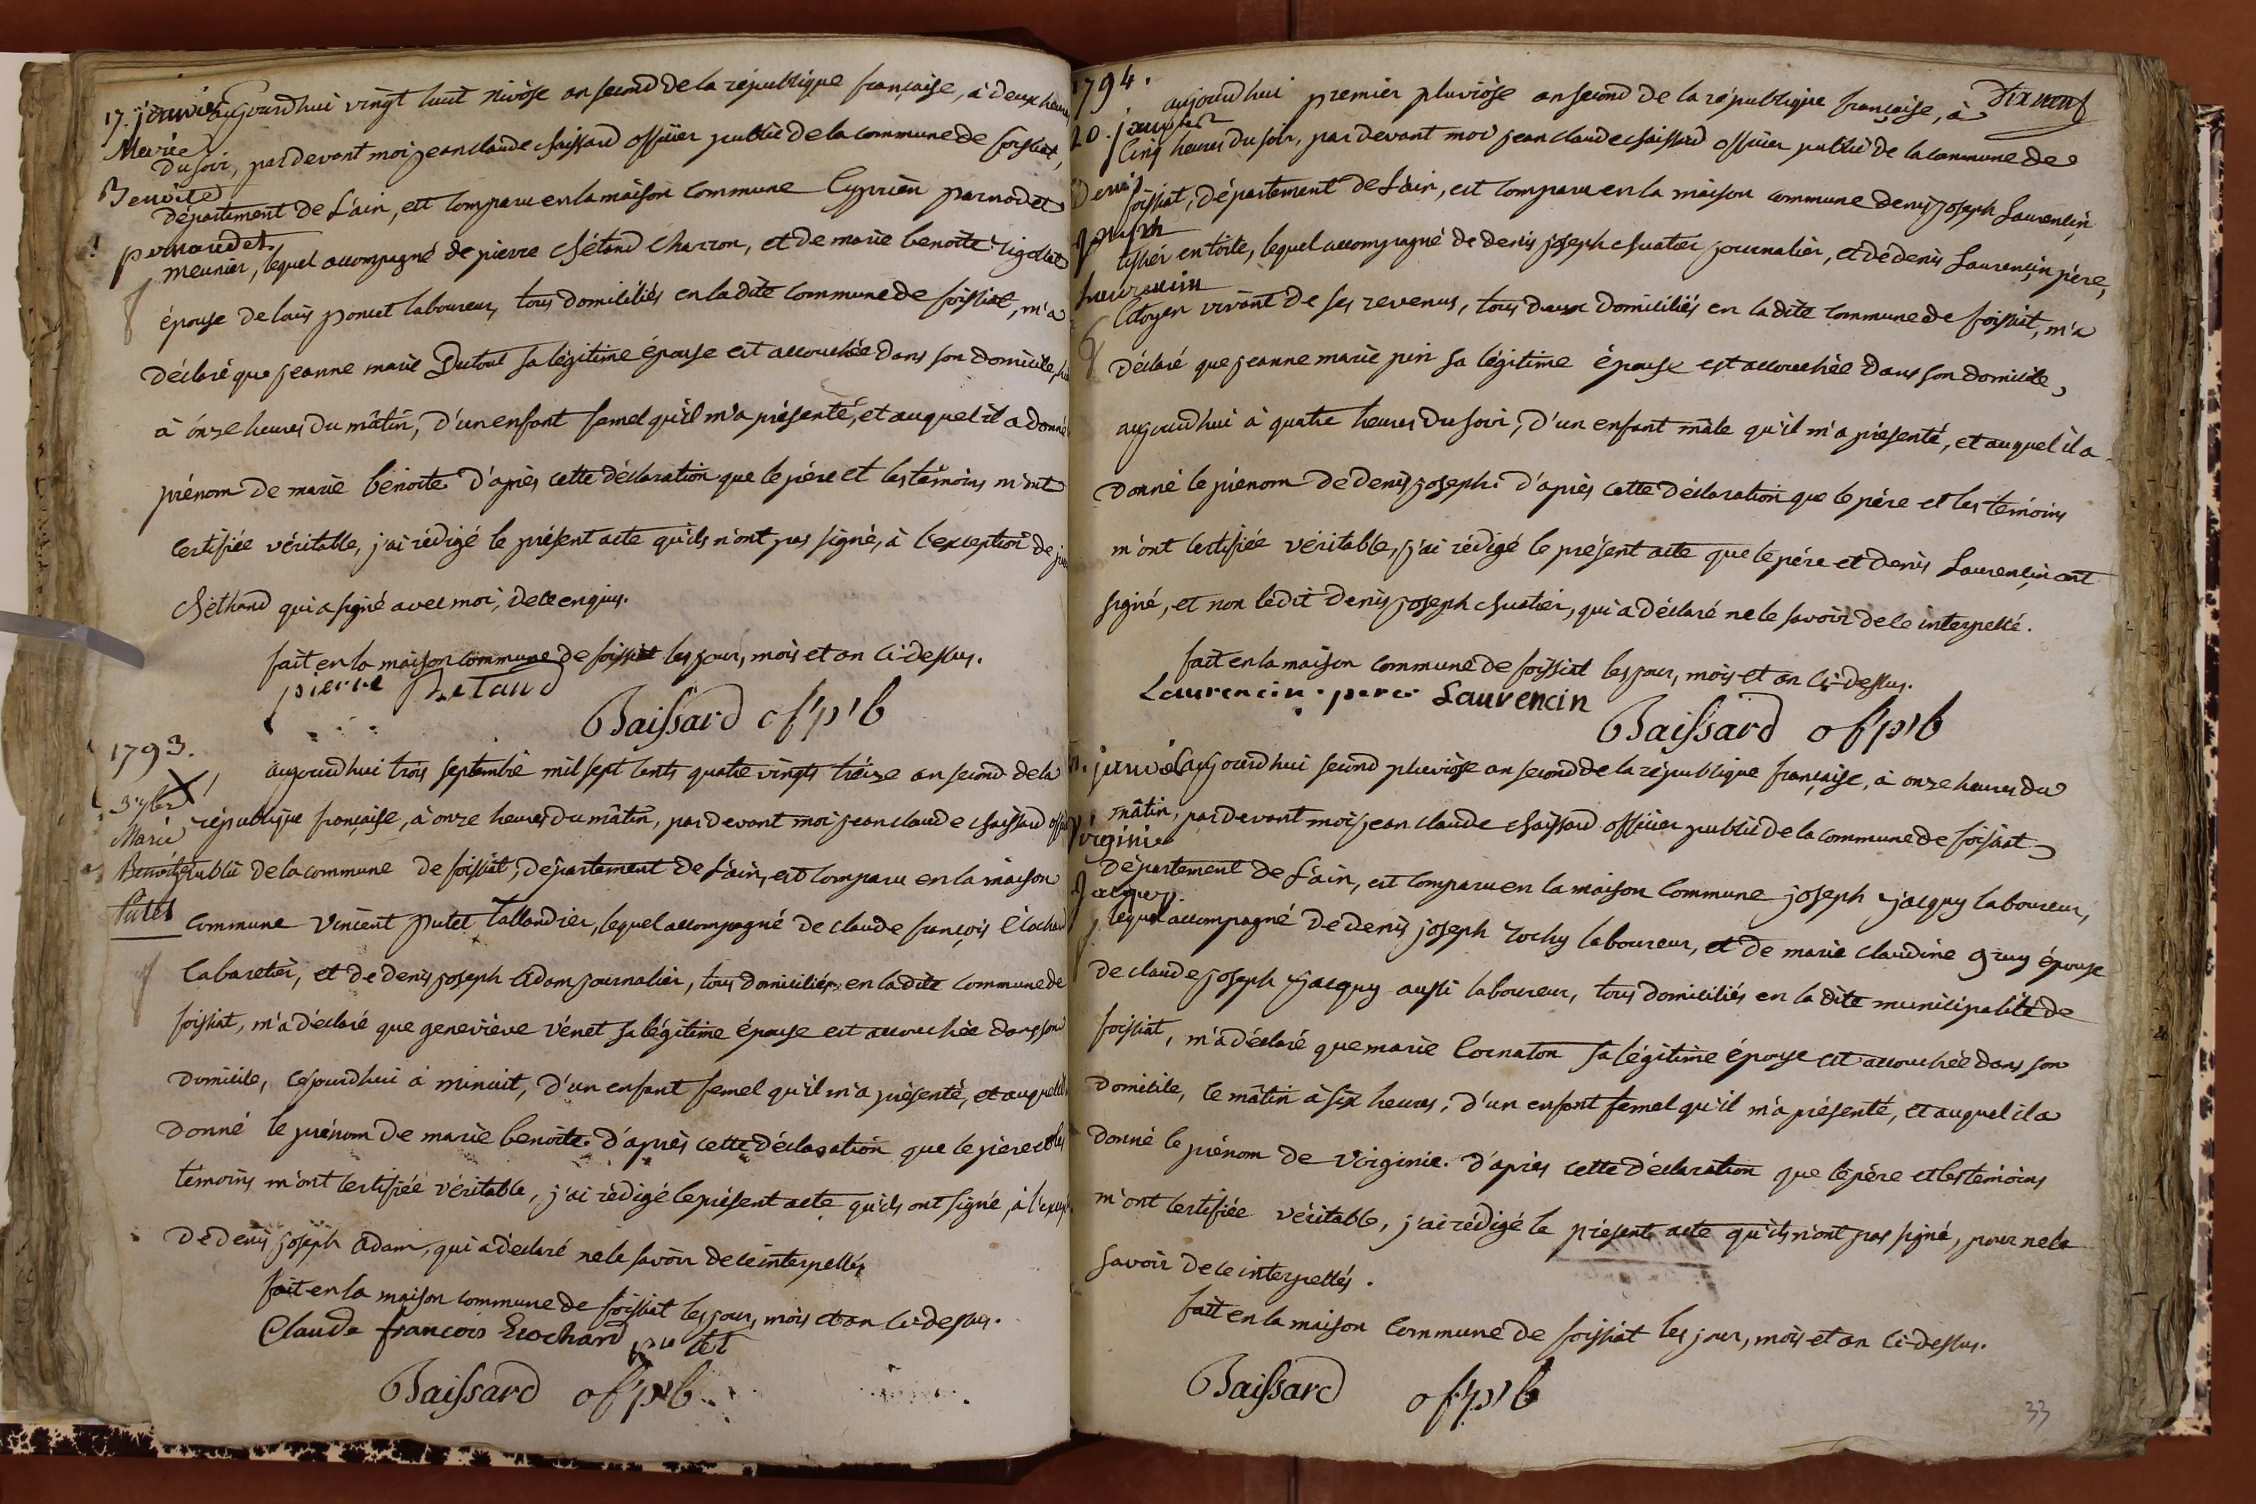 17. janvier aujourdhui vingt huit nivôse an second de la république française, à deux heures
Marie du soir, pardevant moi jean claude chaissard officier public de la commune de foissiat,
Benoite département de L'ain, est comparu en la maison commune Cyprien parnodet
pernaudet meunier, lequel accompagné de pierre chétand charron, et de marie benoite rigollet
épouse de louis poncet laboureur, tous domiciliés en la dite commune de foissiat, m'a
déclaré que jeanne marie Dutout sa légitime épouse est accouchée dans son domicile,
à onze heures du mâtin, d'un enfant femel qu'il m'a présenté, et auquel il a donné
prénom de marie benoite d'après cette déclaration que le père et les témoins m'ont
certifiée véritable, j'ai rédigé le présent acte qu'ils n'ont pas signé, à l'exception de
chéthand qui a signé avec moi, de ce enquis.
fait en la maison commune de foissiat les jour, mois et an ci-dessus.
pierre Chetaud
Baissard of'p'b
1793.
aujourdhui trois septembre mil sept cents quatre vingts treize an second de la
3 7bre
Marie république française, à onze heures du mâtin, pardevant moi jean claude chaissard
Benoite public de la commune de foissiat, département de L'ain, est comparu en la maison
Putet commune vincent putet tallandier, lequel accompagné de claude françois Crochard
cabaretier, et de denis joseph adam journalier, tous domiciliés en la dite commune de
foissiat, m'a déclaré que geneviève vénet sa légitime épouse est accouchée dans son
domicile, cejourdhui à minuit, d'un enfant femel qu'il m'a présenté, et auquel il
donné le prénom de marie benoite. d'après cette déclaration que le père et les
témoins m'ont certifiée véritable, j'ai rédigé le présent acte qu'ils ont signé, à
de denis joseph adam, qui a déclaré ne le savoir de ce interpellés
fait en la maison commune de foissiat les jour, mois et an ci-dessus.
Claude francois Crochard putet
Baissard of'p'b
1794.
aujourdhui premier pluviôse an second de la république française, à Dix neuf
20. janvier
cinq heures du soir, par devant moi jean claude chaissard officier public de la commune de
Denis foissiat, département de L'ain, est comparu en la maison commune denis joseph Laurencin
Joseph tissier en toile, lequel accompagné de denis joseph chuatier journalier, et de denis Laurencin père,
Laurencin citoyen vivant de ses revenus, tous deux domiciliés en la dite commune de foissiat, m'a
déclaré que jeanne marie pin sa légitime épouse est accouchée dans son domicile,
aujourdhui à quatre heures du soir, d'un enfant mâle qu'il m'a présenté, et auquel il a
donné le prénom de denis joseph. d'après cette déclaration que le père et les témoins
m'ont certifiée véritable, j'ai rédigé le présent acte que le père et denis Laurencin ont
signé, et non ledit denis joseph chuatier, qui a déclaré ne le savoir de ce interpellé.
fait en la maison commune de foissiat les jour, mois et an ci-dessus.
Laurencin. pere Laurencin
Baissard of'p'b
janvier aujourdhui second pluviôse an second de la république française, à onze heures du
mâtin, pardevant moi jean claude chaissard officier public de la commune de foissiat
virginie
département de L'ain, est comparu en la maison commune joseph jacquy laboureur,
Jacquy
lequel accompagné de denis joseph rochy laboureur, et de marie claudine gruy épouse
de claude joseph jacquy aussi laboureur, tous domiciliés en la dite municipalité de
foissiat, m'a déclaré que marie Cornaton sa légitime épouse est accouchée dans son
domicile, ce mâtin à six heures, d'un enfant femel qu'il m'a présenté, et auquel il a
donné le prénom de virginie. d'après cette déclaration que le père et les témoins
m'ont certifiée véritable, j'ai rédigé le présent acte qu'ils n'ont pas signé, pour ne le
savoir de ce interpellés.
fait en la maison commune de foissiat les jour, mois et an ci-dessus.
Baissard of'p'b
33